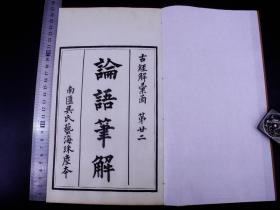 古經解彙函 第廿二
論語筆解
南匯吳氏藝海珠塵本